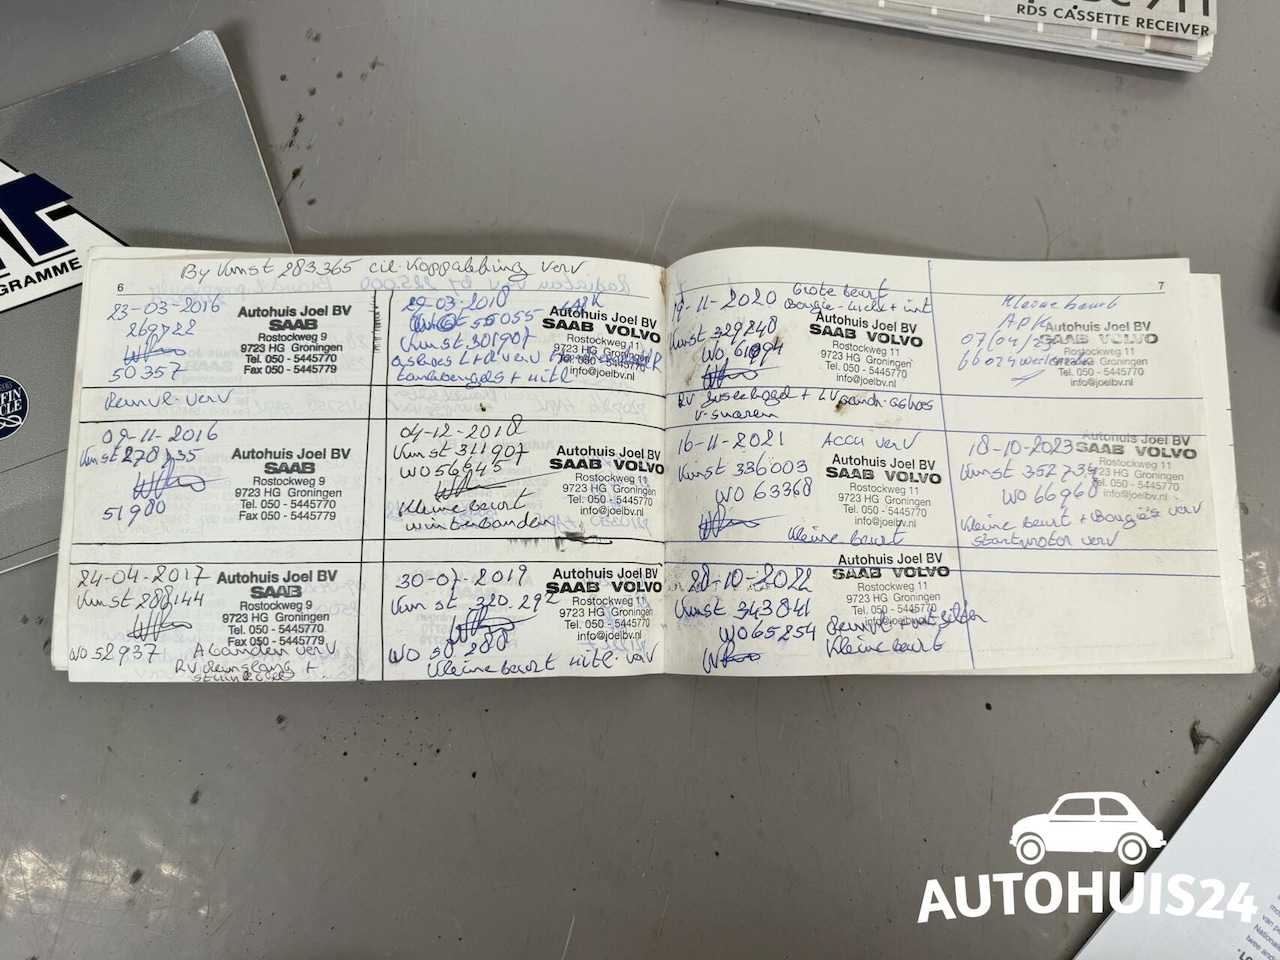 RDS CASSETTE RECEIVER
OGRAMME
FIN
CLE
By kmst 283365 cil. Koppakbing verv
6
23-03-2016
269722
50357
Autohuis Joel BV
SAAB
Rostockweg 9
9723 HG Groningen
Tel. 050 - 5445770
Fax 050 - 5445779
verv
29-03-2018
kmst 301907
Autohuis Joel BV
SAAB VOLVO
09-11-2016
kmst 278735
51900
Autohuis Joel BV
SAAB
Rostockweg 9
9723 HG Groningen
Tel. 050 - 5445770
Fax 050 - 5445779
04-12-2018
kmst 311907
WO 56645
Kleine beurt
winterbanden
Autohuis Joel BV
SAAB VOLVO
Rostockweg 11
9723 HG Groningen
Tel. 050 - 5445770
info@joelbv.nl
24-04-2017
kmst 288144
WO 52937
A banden verv
Autohuis Joel BV
SAAB
Rostockweg 9
9723 HG Groningen
Tel. 050 - 5445770
Fax 050 - 5445779
30-07-2019
kmst 320.292
WO
Kleine beurt uitl. verv
Autohuis Joel BV
SAAB VOLVO
Rostockweg 11
9723 HG Groningen
Tel. 050 - 5445770
info@joelbv.nl
7
19-11-2020
Grote beurt
kmst 329248
WO
Autohuis Joel BV
SAAB VOLVO
Rostockweg 11
9723 HG Groningen
Tel. 050 - 5445770
info@joelbv.nl
V-snaren
Kleine beurt
APK
07/04/
Autohuis Joel BV
SAAB VOLVO
Rostockweg 11
Groningen
Tel. 050 - 5445770
info@joelbv.nl
16-11-2021
Accu verv
kmst 336003
WO 63368
Kleine beurt
Autohuis Joel BV
SAAB VOLVO
Rostockweg 11
9723 HG Groningen
Tel. 050 - 5445770
info@joelbv.nl
18-10-2023
kmst 352734
WO 66960
Kleine beurt + Bougie's verv
startmotor verv
Autohuis Joel BV
SAAB VOLVO
Rostockweg 11
9723 HG Groningen
Tel. 050 - 5445770
info@joelbv.nl
28-10-2022
kmst 343841
WO 65254
Kleine beurt
Autohuis Joel BV
SAAB VOLVO
Rostockweg 11
9723 HG Groningen
Tel. 050 - 5445770
info@joelbv.nl
AUTOHUIS24